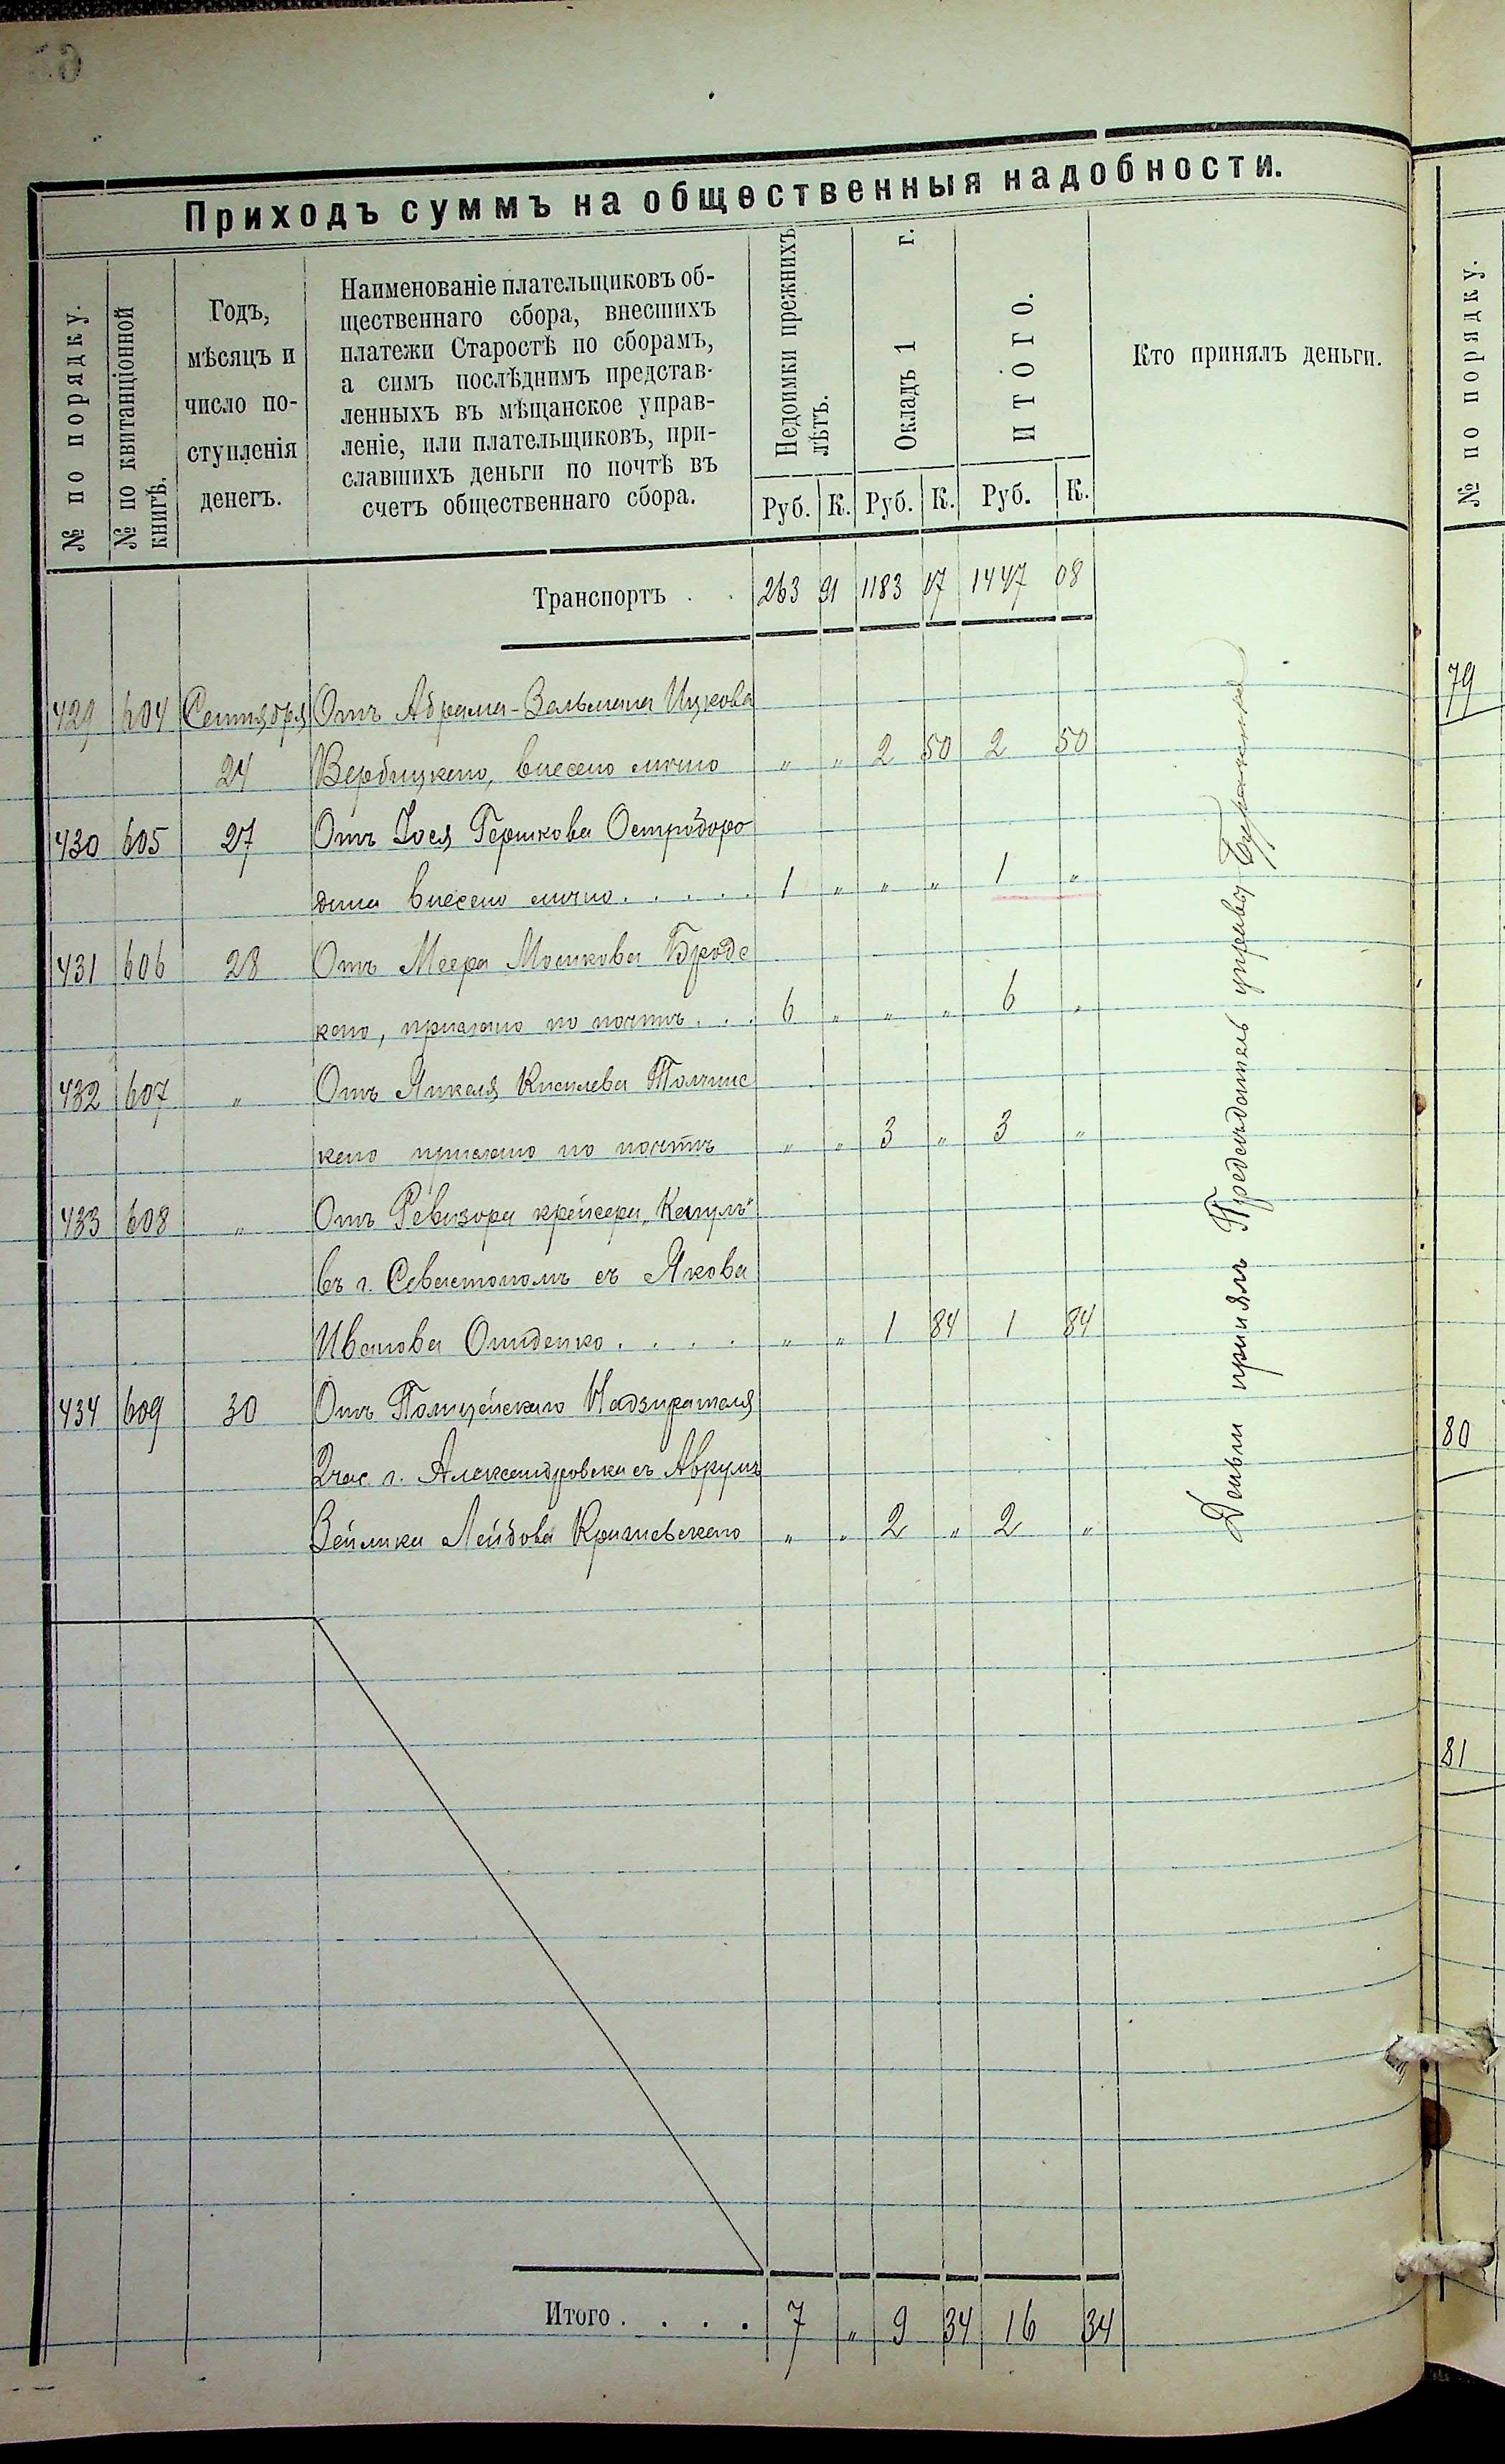 Приходъ суммъ на общественныя надобности.
№ по порядку.
№ по квитанціонной
книгѣ.
Годъ,
мѣсяцъ и
число по-
ступленія
денегъ.
Наименованіе плательщиковъ об-
щественнаго сбора, внесшихъ
платежи Старостѣ по сборамъ,
а симъ послѣднимъ представ-
ленныхъ въ мѣщанское управ-
леніе, или плательщиковъ, при-
славшихъ деньги по почтѣ въ
счетъ общественнаго сбора.
Недоимки прежнихъ
лѣтъ.
Окладъ 1 г.
ИТОГО.
Кто принялъ деньги.
Руб. К. Руб. К. Руб. К.
Транспортъ . . 263 91 1183 17 1447 08
429 604 Сентября Отъ Абрама-Зальмана Ицкова
24 Вербицкаго, внесено лично " " 2 50 2 50
430 605 27 Отъ Іося Гершкова Остробро
дина внесено лично. . . . . 1 " " " 1 "
431 606 28 Отъ Меера Мошкова Бродс
каго, прислано по почтѣ. . . 6 " " " 6 "
432 607 " Отъ Янкеля Кисилева Толчинс
каго прислано по почтѣ " " 3 " 3 "
433 608 " Отъ Ревизора крейсера „Кагулъ"
въ г. Севастополѣ съ Якова
Иванова . . . . " " 1 84 1 84
434 609 30 Отъ Полицейскаго Надзирателя
2 час. г. Александровска съ Аврумъ
Зейлика Лейбова " " 2 " 2 "
Деньги принялъ Предсѣдатель управы
Итого . . . . 7 " 9 34 16 34
№ по порядку.
79
80
81